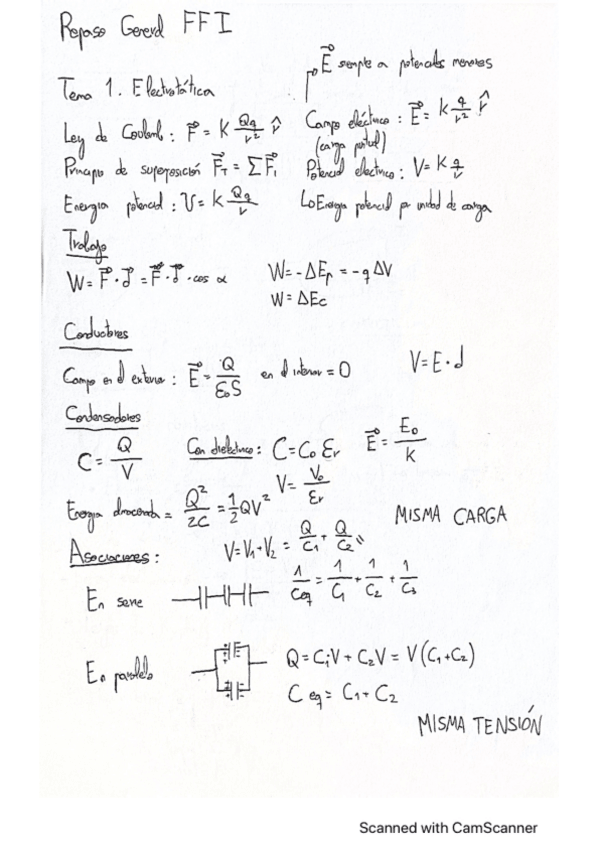 Repaso General FFI
E⃗ siempre a potenciales menores
Tema 1. Electrotática
Ley de Coulomb: F⃗ = K Qq/r² r̂
Campo eléctrico: E⃗ = K q/r² r̂
(carga puntual)
Principio de superposición F⃗T = ΣF⃗i
Potencial electrico: V = K q/r
Energía potencial: U = K Qq/r
↳ Energía potencial por unidad de carga
Trabajo
W = F⃗ · d⃗ = F⃗ · d⃗ · cos α
W = -ΔEp = -q ΔV
W = ΔEc
Conductores
Campo en el exterior: E⃗ = Q/ε₀S en el interior = 0
V = E · d
Condensadores
C = Q/V
Con dieléctrico: C = C₀ εr
E⃗ = E₀/K
V = V₀/εr
Energía almacenada = Q²/2C = 1/2 QV²
MISMA CARGA
Asociaciones:
V = V₁ + V₂ = Q/C₁ + Q/C₂
En serie
1/Ceq = 1/C₁ + 1/C₂ + 1/C₃
En paralelo
Q = C₁V + C₂V = V(C₁ + C₂)
Ceq = C₁ + C₂
MISMA TENSIÓN
Scanned with CamScanner